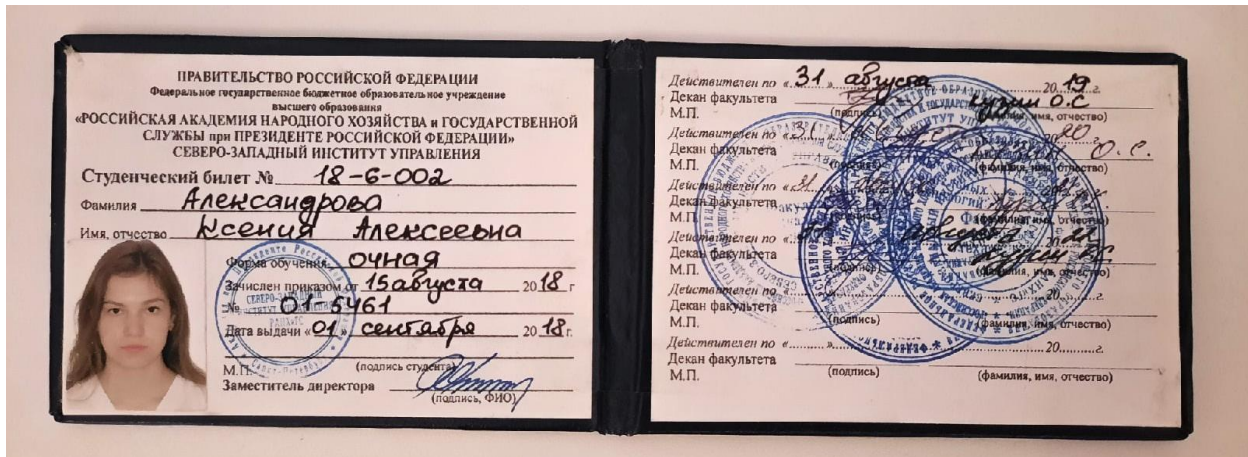 ПРАВИТЕЛЬСТВО РОССИЙСКОЙ ФЕДЕРАЦИИ
Федеральное государственное бюджетное образовательное учреждение
высшего образования
«РОССИЙСКАЯ АКАДЕМИЯ НАРОДНОГО ХОЗЯЙСТВА и ГОСУДАРСТВЕННОЙ
СЛУЖБЫ при ПРЕЗИДЕНТЕ РОССИЙСКОЙ ФЕДЕРАЦИИ»
СЕВЕРО-ЗАПАДНЫЙ ИНСТИТУТ УПРАВЛЕНИЯ
Студенческий билет № 18-6-002
Фамилия Александрова
Имя, отчество Ксения Алексеевна
Форма обучения очная
Зачислен приказом от 15 августа 2018 г
№ 01-5461
Дата выдачи «01 сентября 2018 г.
М.П. (подпись студента)
Заместитель директора
(подпись, ФИО)
СЕВЕРО-ЗАПАДНЫЙ
ИНСТИТУТ УПРАВЛЕНИЯ
РАНХиГС
Действителен по «31» августа 2019 г.
Декан факультета О.С
М.П. (подпись) (фамилия, имя, отчество)
Действителен по «31 20
Декан факультета О.С.
М.П. (фамилия, имя, отчество)
Действителен по «31
Декан факультета
М.П. (фамилия, имя, отчество)
Действителен по «
Декан факультета
М.П. (подпись) (фамилия, имя, отчество)
Действителен по « 20 г.
Декан факультета
М.П. (подпись) (фамилия, имя, отчество)
Действителен по « ». 20 г.
Декан факультета
М.П. (подпись) (фамилия, имя, отчество)